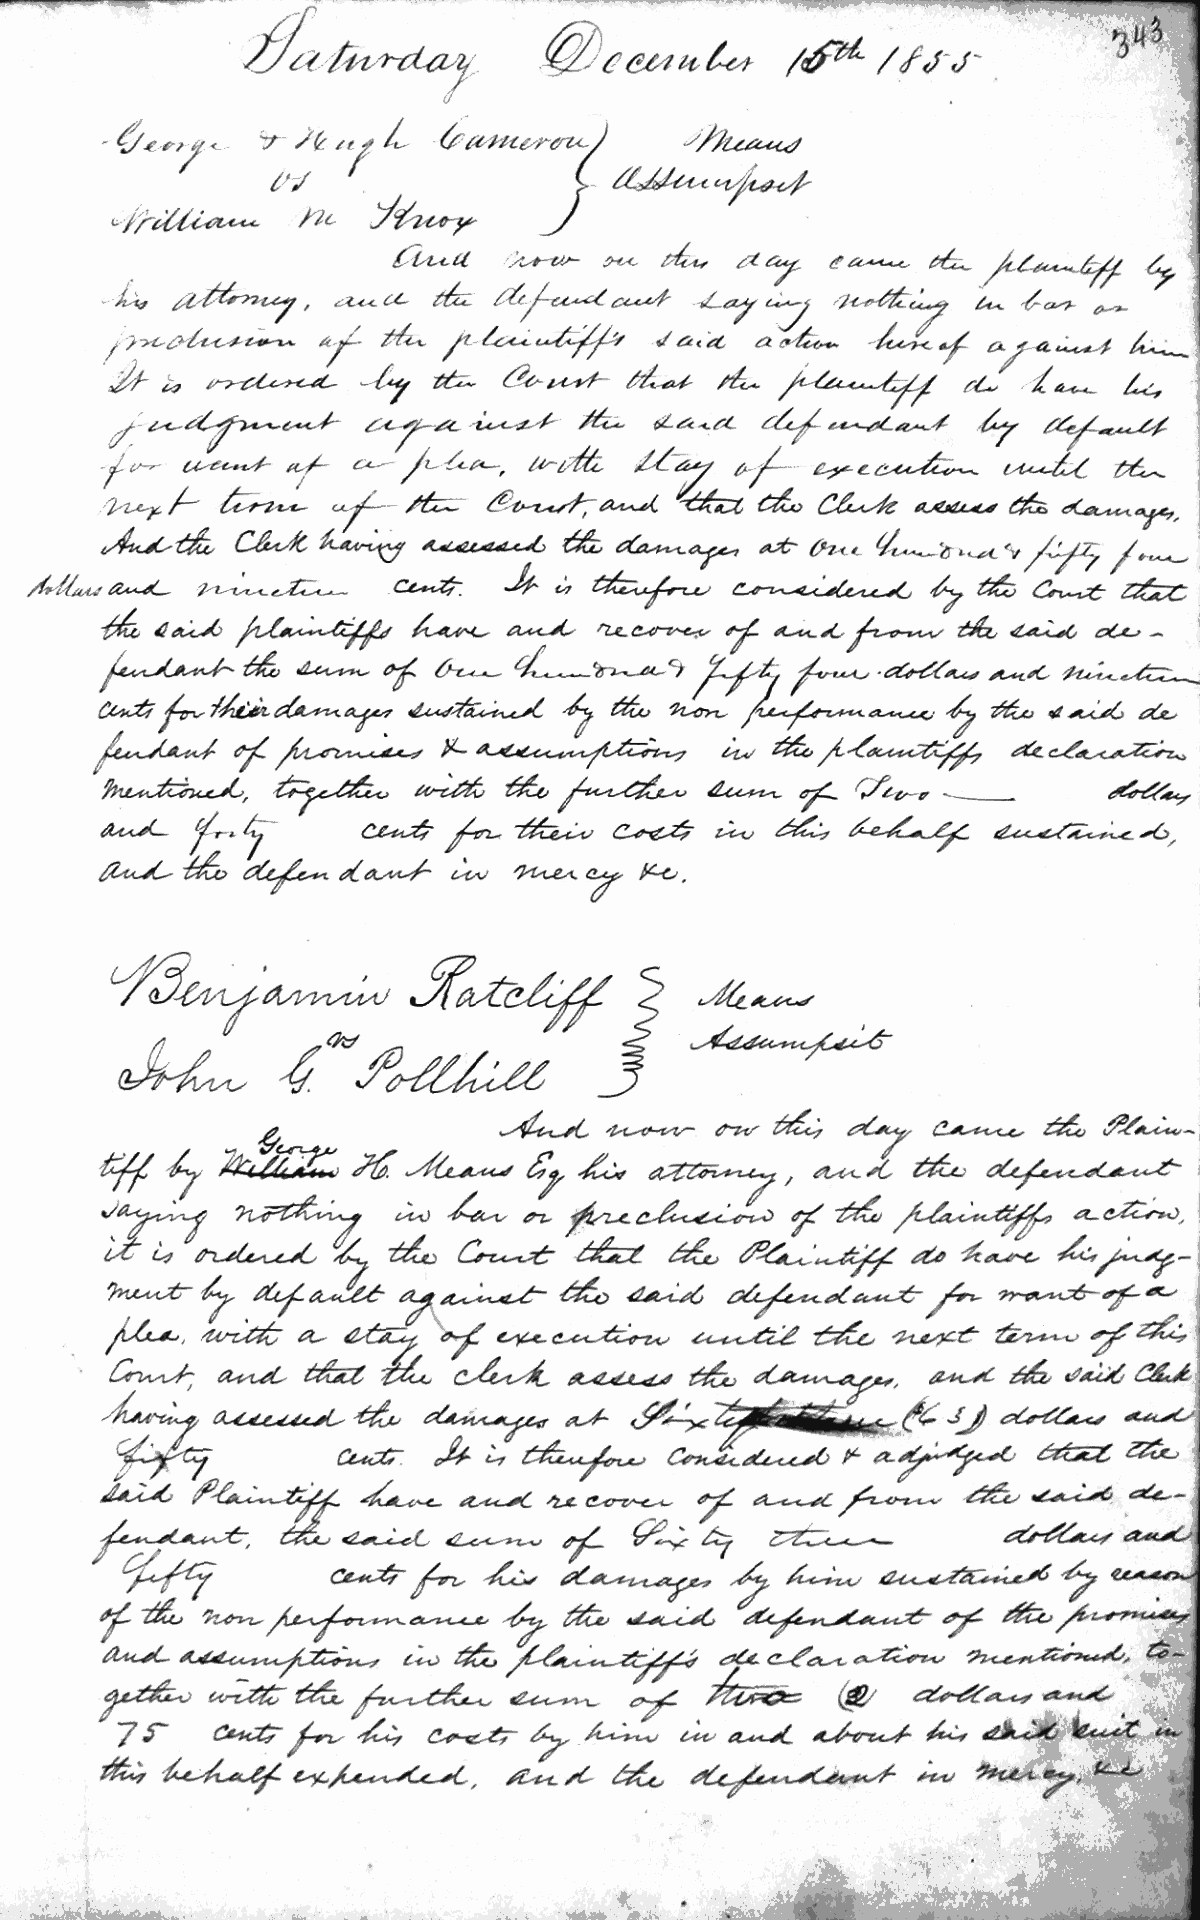 343
Saturday December 15th 1855
George & Hugh Cameron } Means
vs } Assumpsit
William M Knox
And now on this day came the plaintiff by
his attorney, and the defendant saying nothing in bar or
preclusion of the plaintiff's said action hereof against him
It is ordered by the Court that the plaintiff do have his
judgment against the said defendant by default
for want of a plea, with stay of execution until the
next term of the Court, and that the Clerk assess the damages,
And the Clerk having assessed the damages at One hundred & fifty four
dollars and nineteen cents. It is therefore considered by the Court that
the said plaintiffs have and recover of and from the said de-
fendant the sum of One hundred & fifty four dollars and nineteen
cents for their damages sustained by the non performance by the said de
fendant of promises & assumptions in the plaintiffs declaration
mentioned, together with the further sum of Two — dollars
and forty cents for their costs in this behalf sustained,
and the defendant in mercy &c.
Benjamin Ratcliff } Means
vs } Assumpsit
John G. Pollhill
And now on this day came the Plain-
George
tiff by William H. Means Esq his attorney, and the defendant
saying nothing in bar or preclusion of the plaintiffs action,
it is ordered by the Court that the Plaintiff do have his judg-
ment by default against the said defendant for want of a
plea, with a stay of execution until the next term of this
Court, and that the clerk assess the damages, and the said Clerk
having assessed the damages at Sixty (63) dollars and
fifty cents. It is therefore considered & adjudged that the
said Plaintiff have and recover of and from the said de-
fendant, the said sum of Sixty three dollars and
fifty cents for his damages by him sustained by reason
of the non performance by the said defendant of the promises
and assumptions in the plaintiff's declaration mentioned, to-
gether with the further sum of two (2) dollars and
75 cents for his costs by him in and about his said suit in
this behalf expended, and the defendant in mercy, &c